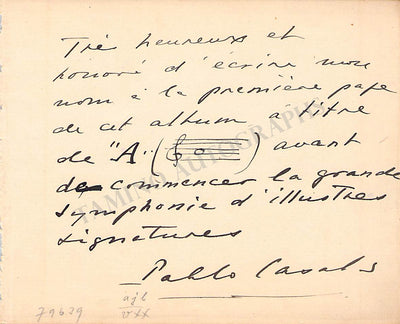 Très heureux et
honoré d'écrire mon
nom à la première page
de cet album à titre
de "A" ( ) avant
de commencer la grande
symphonie d'illustres
signatures
Pablo Casals
79629
ajl
vxx
TAMINO AUTOGRAPHS